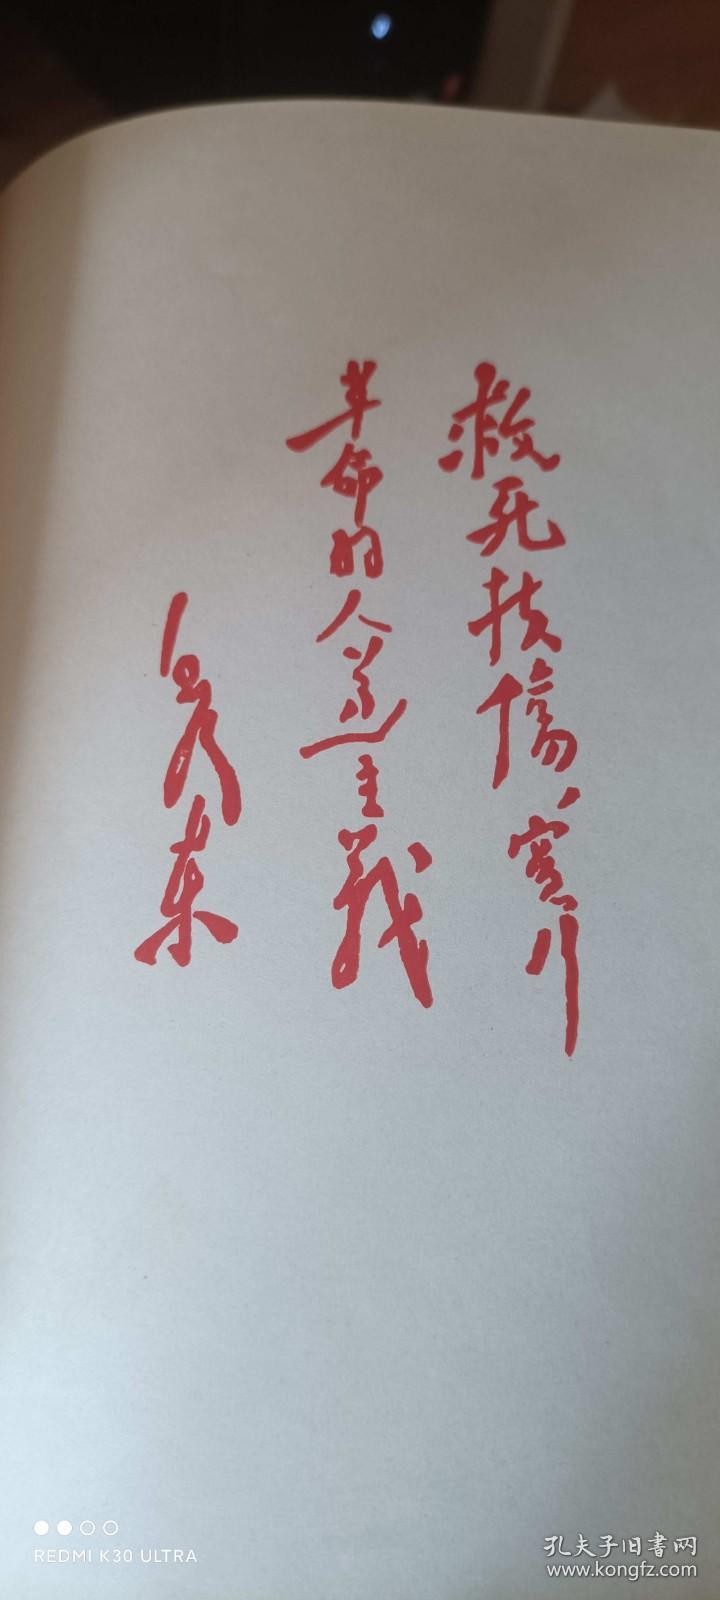 救死扶傷、實行
革命的人道主義
毛泽东
REDMI K30 ULTRA
孔夫子旧书网
www.kongfz.com